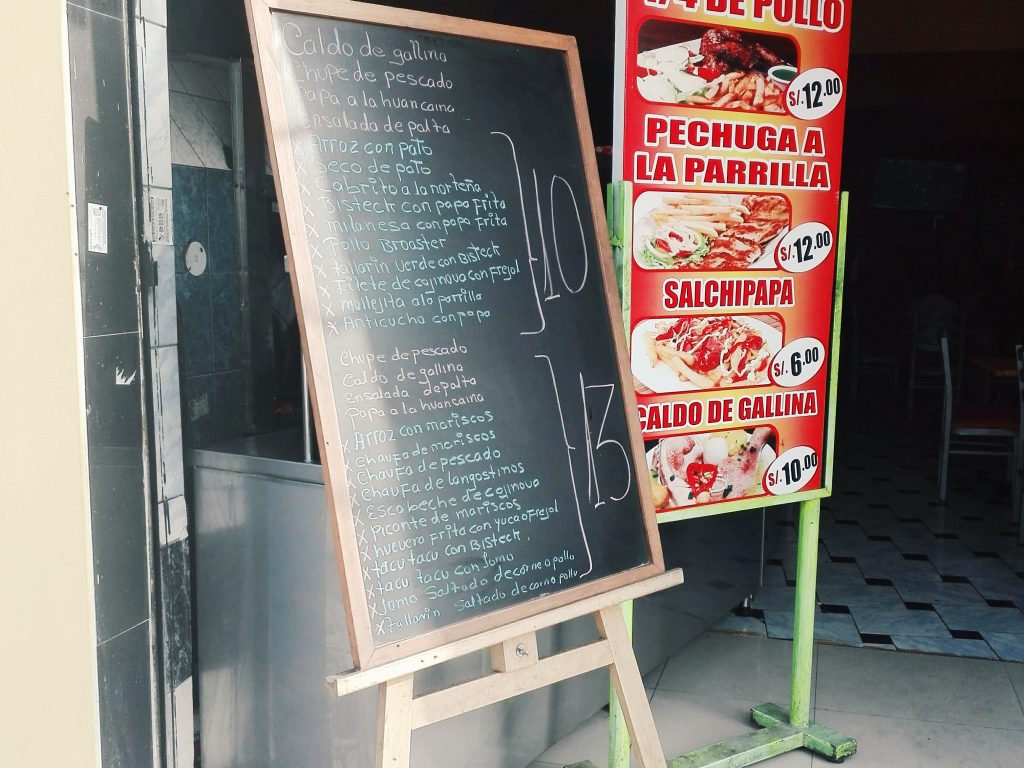 Caldo de gallina
Chupe de pescado
Papa a la huancaina
Ensalada de palta
x Arroz con pato
x Seco de pato
x Cabrito a la norteña
x Bisteck con papa frita
x milanesa con papa frita
x Pollo Broaster
x tallarin verde con Bisteck
x Filete de cojinova con Frejol
x mollejita a la parrilla
x Anticucho con papa
10
Chupe de pescado
Caldo de gallina
Ensalada de palta
Papa a la huancaina
x Arroz con mariscos
x chaufa de mariscos
x chaufa de pescado
x chaufa de langostinos
x Escabeche de cojinova
x Picante de mariscos
x huevera Frita con yuca o Frejol
x tacu tacu con Bisteck.
x tacu tacu con lomo
x lomo Saltado de carne o pollo
x tallarin Saltado de carne o pollo
13
1/4 DE POLLO
S/.12.00
PECHUGA A
LA PARRILLA
S/.12.00
SALCHIPAPA
S/.6.00
CALDO DE GALLINA
S/.10.00